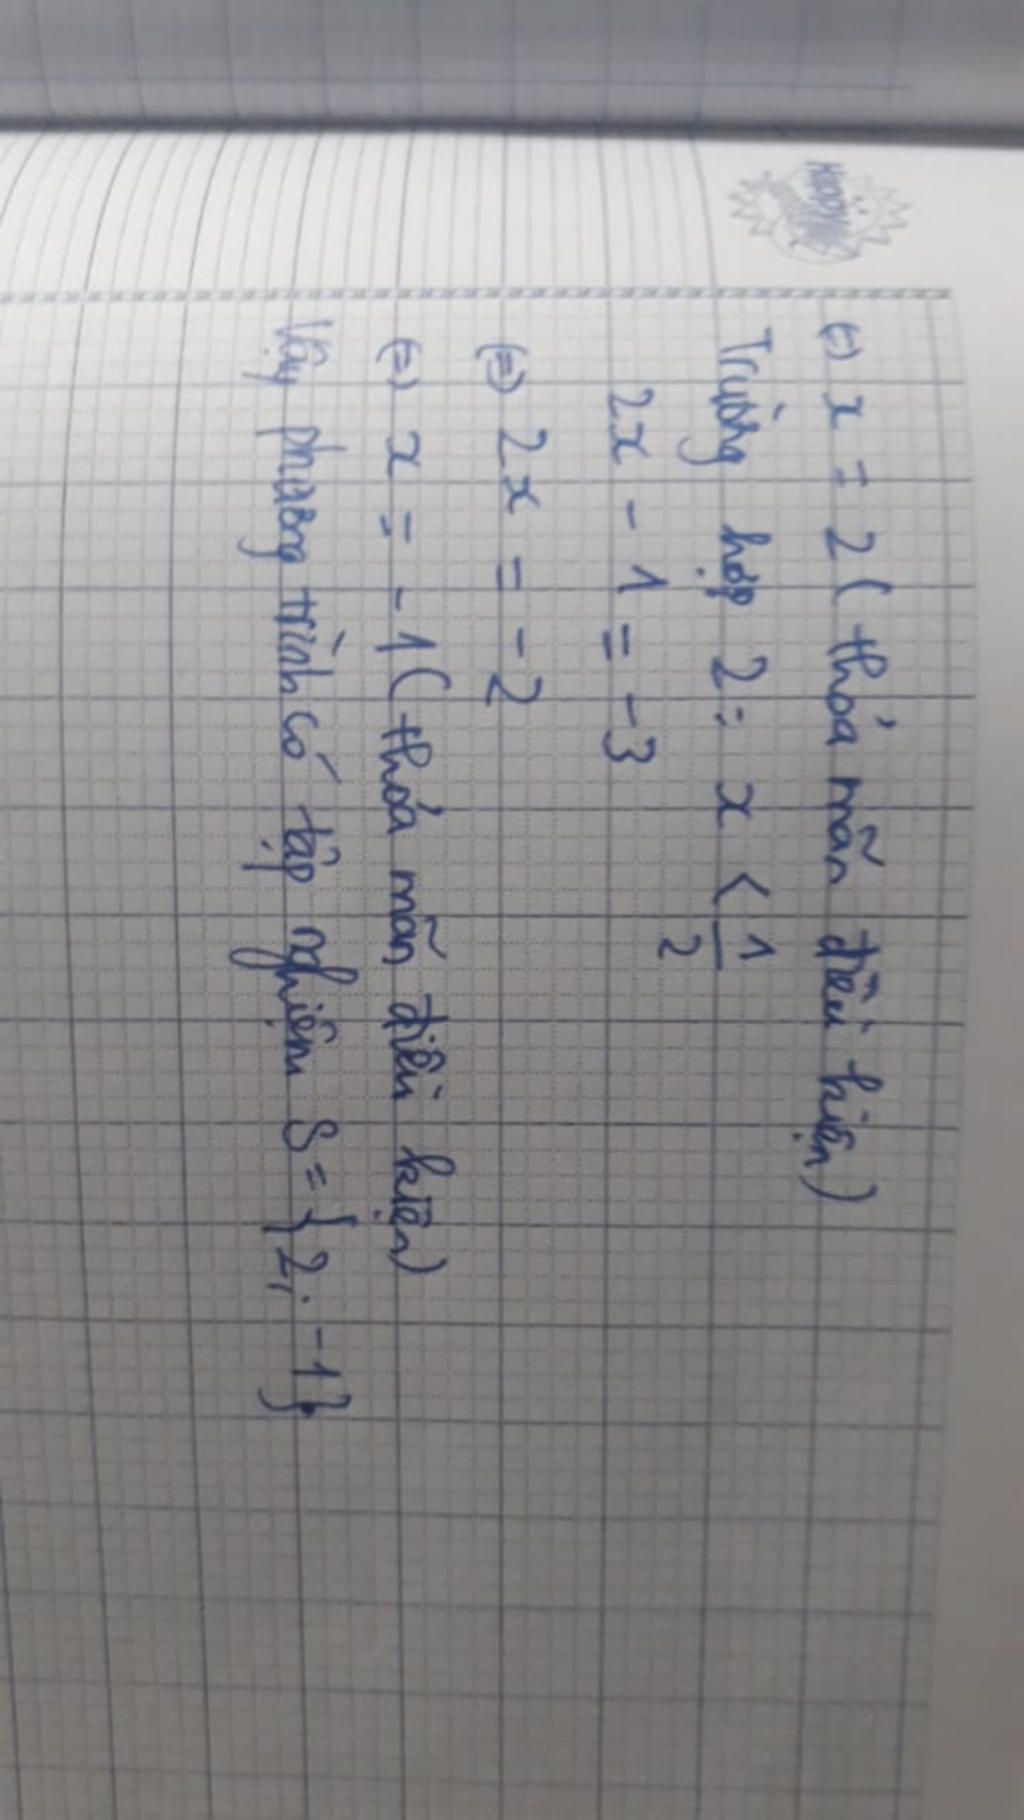 (=) x = 2 ( thỏa mãn điều kiện)
Trường hợp 2: x < 1/2
2x - 1 = -3
(=) 2x = -2
(=) x = -1 ( thỏa mãn điều kiện)
Vậy phương trình có tập nghiệm S = {2; -1}.